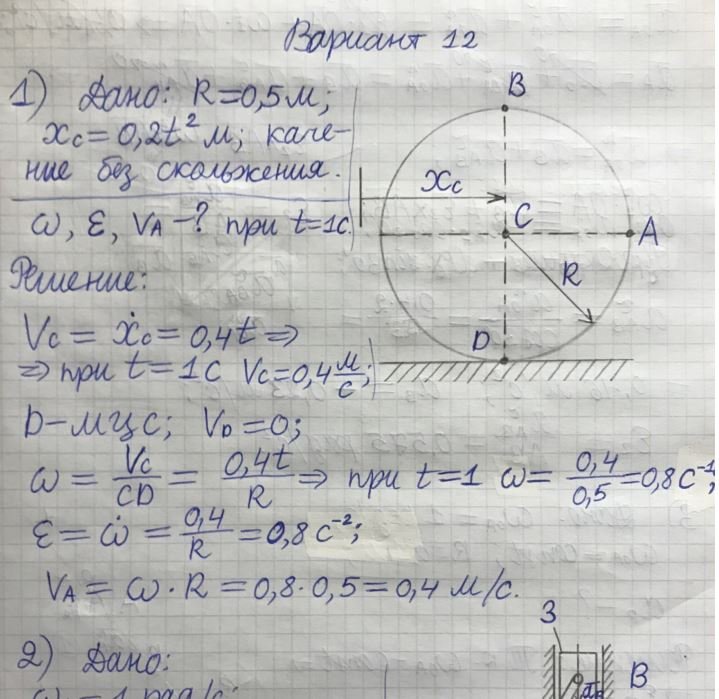 Вариант 12
1) Дано: R=0,5м;
xc=0,2t² м; каче-
ние без скольжения.
ω, ε, VA -? при t=1с.
Решение:
Vc = ẋc = 0,4t ⇒
⇒ при t=1с Vc=0,4 м/с;
D-мцс; VD=0;
ω = Vc/CD = 0,4t/R ⇒ при t=1 ω= 0,4/0,5 =0,8 с⁻¹;
ε = ω̇ = 0,4/R = 0,8 с⁻²;
VA = ω·R = 0,8·0,5 = 0,4 м/с.
2) Дано:
B
xc
C
A
R
D
3
B